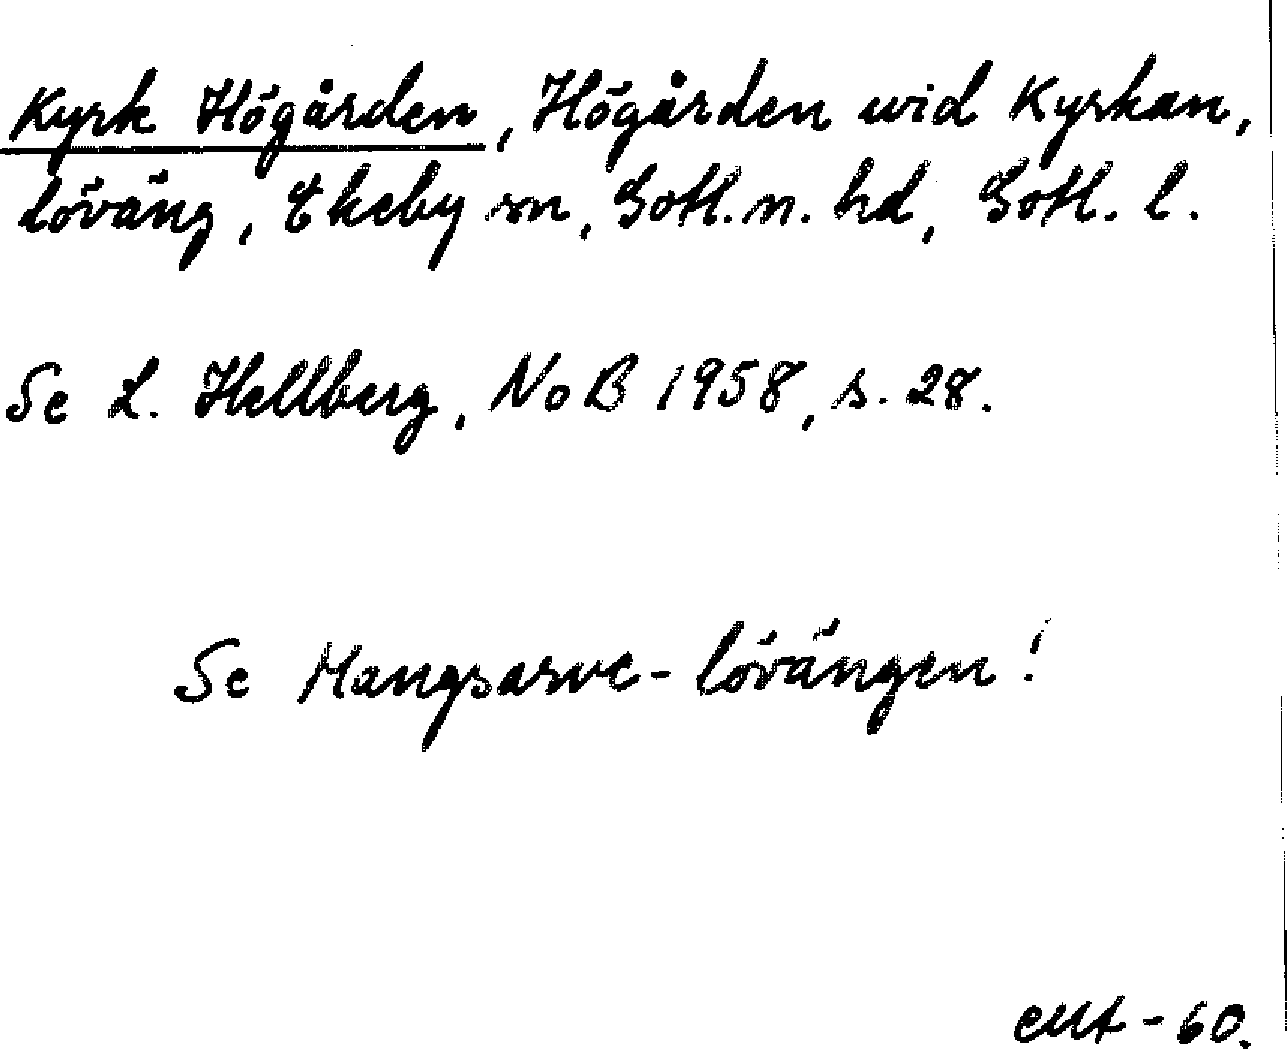 Kyrk Högården, Högården wid Kyrkan,
löväng, Ekeby sn, Gotl. n. hd, Gotl. l.
Se L. Hellberg, NoB 1958, s. 28.
Se Mangsarve-lövängen!
EMt - 60.